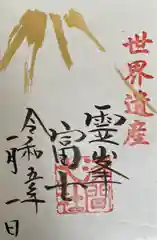 世界遺産
霊峯
富士
令和五年
一月一日